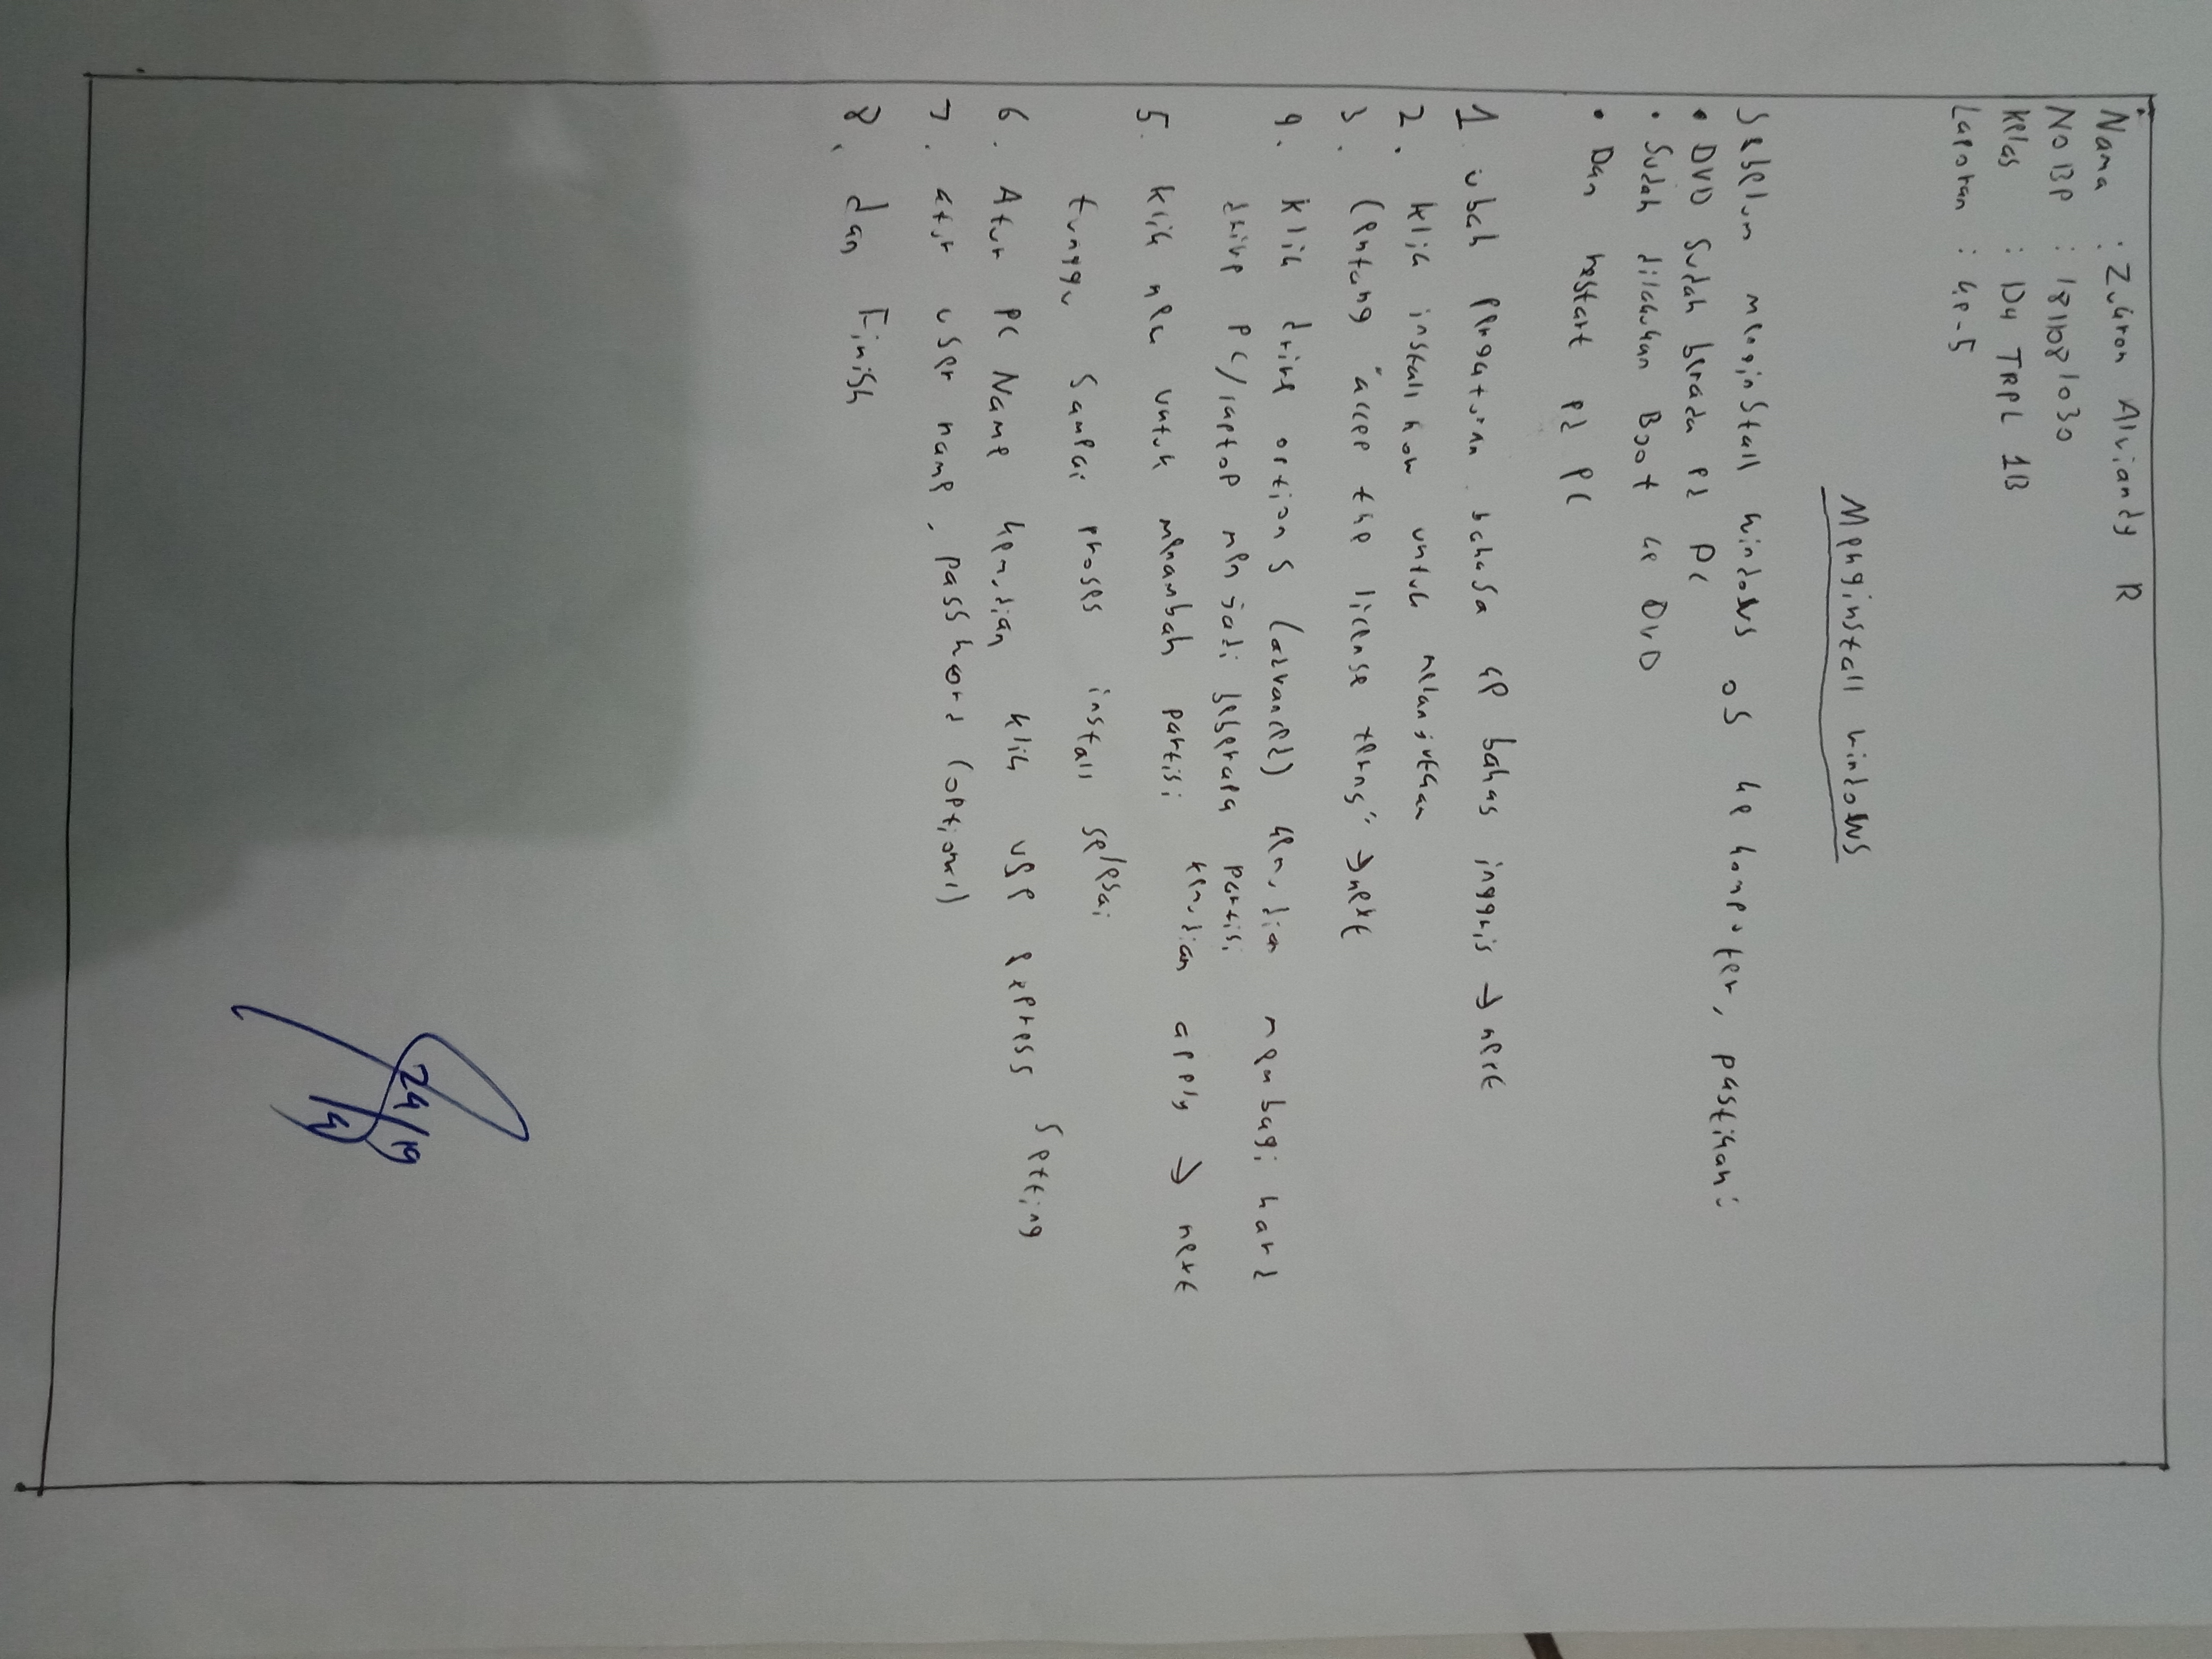 Nama : Zukron Alviandy R
NO BP : 1811081030
Kelas : D4 TRPL 1B
Laporan : ke-5
Menginstall windows
Sebelum menginstall windows os ke komputer, pastikan:
• DVD sudah berada pd PC
• Sudah dilakukan Boot ke DVD
• Dan restart pd PC
1 ubah pengaturan bahasa ke bahas inggris → next
2. Klik install now untuk melanjutkan
3. Centang "accep the license terms" → next
4. Klik drive options (advanced) kemudian membagi hard
drive PC/laptop menjadi beberapa partisi
5. Klik new untuk menambah partisi kemudian apply → next
tunggu sampai proses install selesai
6. Atur PC Name kemudian klik use express setting
7. atur user name, password (optional)
8. dan Finish
24/19
4